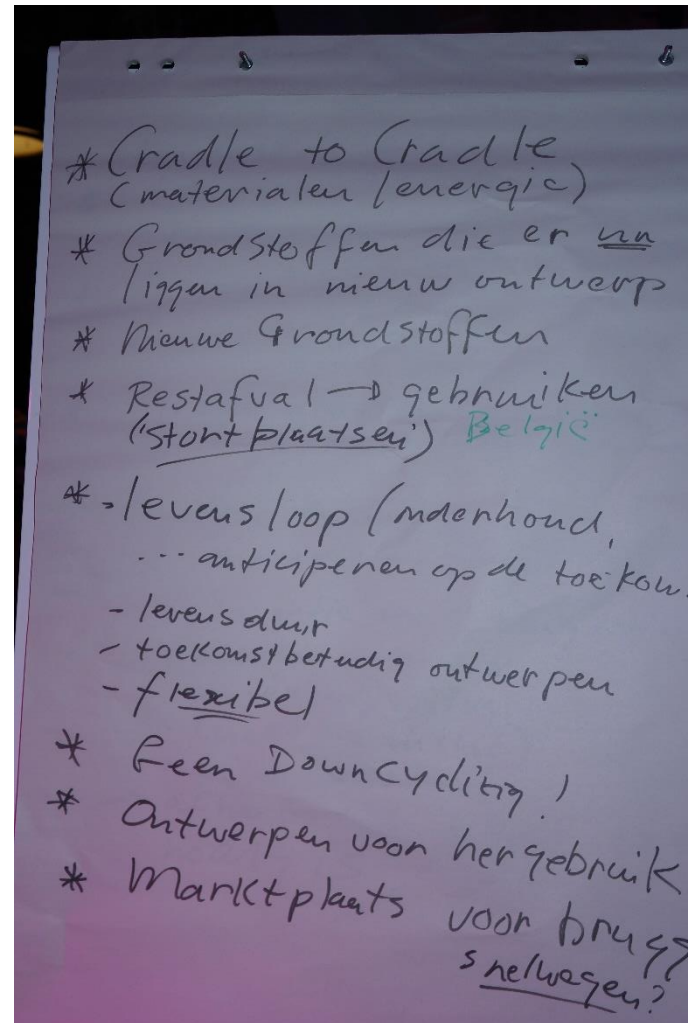 * Cradle to Cradle
(materialen / energie)
* Grondstoffen die er nu
liggen in nieuw ontwerp
* Nieuwe Grondstoffen
* Restafval → gebruiken
('stortplaatsen') België
* - levensloop (onderhoud,
... anticiperen op de toekom
- levensduur
- toekomstbestendig ontwerpen
- flexibel
* Geen Downcycling!
* Ontwerpen voor hergebruik
* Marktplaats voor brugg
snelwegen?